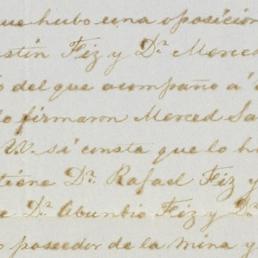 que hubo una oposicion
stin Fiz y Dn. Merced
o del que acompaño a
lo firmaron Merced Sa
V. si consta que lo h
tiene Dn. Rafael Fiz y
e Dn. Abundio Fiz y Dn.
o poseedor de la mina y